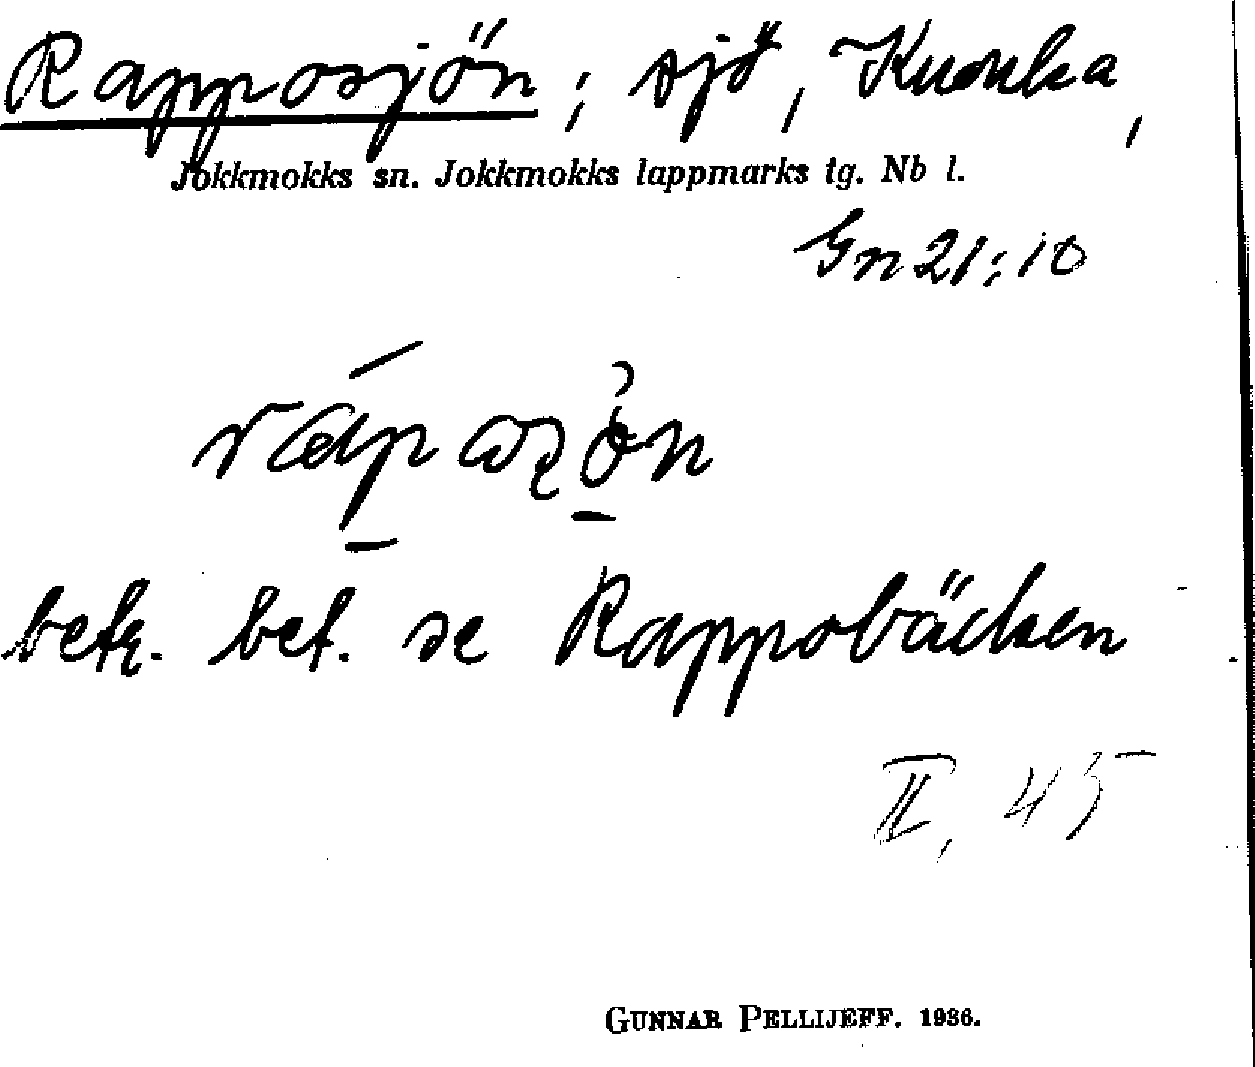 Rapposjön; sjö, Kuouka,
Jokkmokks sn. Jokkmokks lappmarks tg. Nb l.
Gn 21:10
betr. bet. se Rappobäcken
II, 45
GUNNAR PELLIJEFF. 1936.